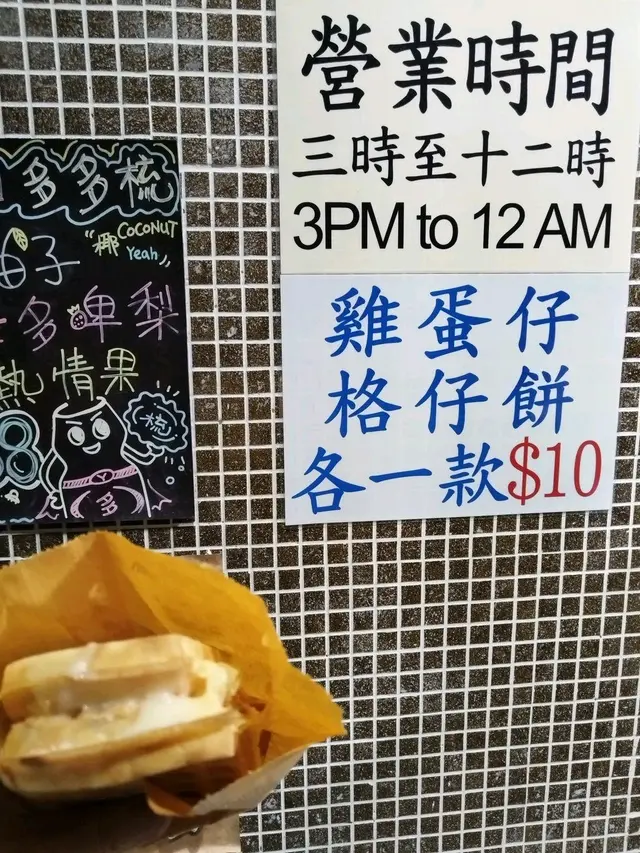 多多梳
"椰COCONUT
Yeah"
柚子
多啤梨
熱情果
梳
多
營業時間
三時至十二時
3PM to 12 AM
雞蛋仔
格仔餅
各一款$10